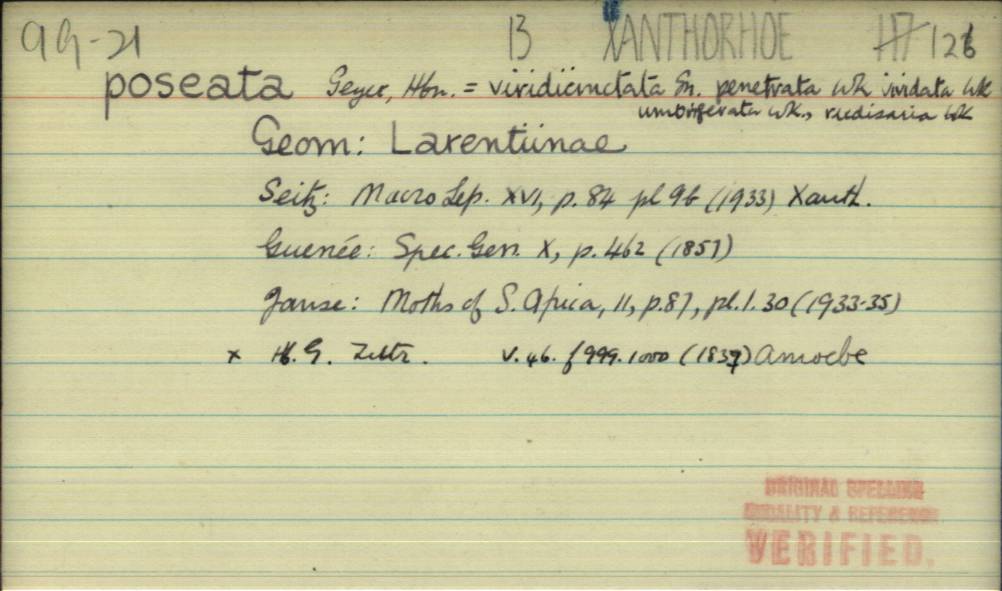 99-21 B XANTHORHOE 117 126
poseata Geyer, Hbn. = viridicinctata Gn. penetrata Wlk vividata Wlk
umbriferata Wlk., rudisaria Wlk
Geom: Larentiinae
Seitz: Macro Lep. XVI, p. 84 pl 9b (1933) Xanth.
Guenée: Spec. Gen. X, p. 462 (1857)
Janse: Moths of S. Africa, 11, p. 87, pl. 1. 30 (1933-35)
x H. G. Zutr. V. 46. f 999. 1000 (1837) Amoebe
ORIGINAL SPELLING
MODALITY & REFERENCE
VERIFIED.